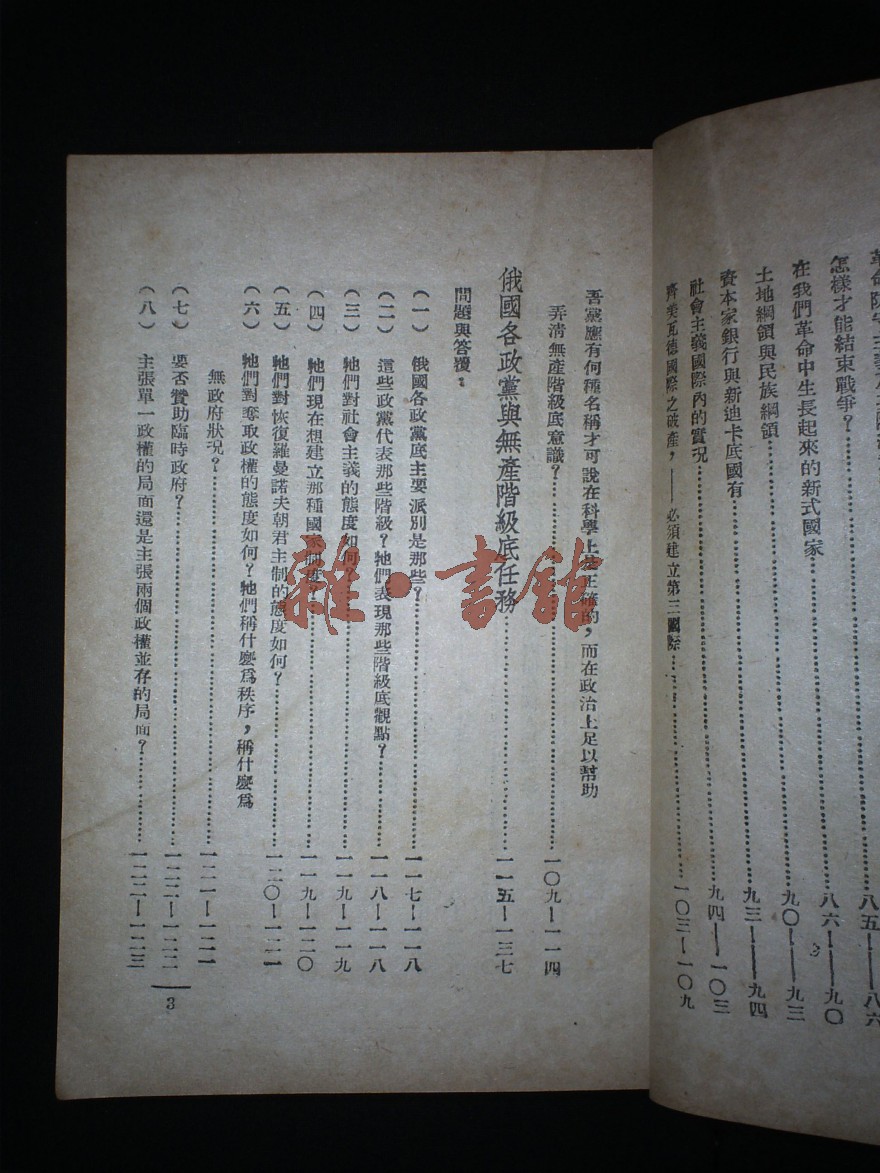 怎樣才能結束戰爭？……八六——九〇
在我們革命中生長起來的新式國家……九〇——九三
土地綱領與民族綱領……九三——九四
資本家銀行與新迪卡底國有……
社會主義國際內的實況……九四——一〇三
齊美瓦德國際之破產，——必須建立第三國際……一〇三—一〇九
吾黨應有何種名稱才可說在科學上是正確的，而在政治上足以幫助
弄清無產階級底意識？……一〇九—一一四
俄國各政黨與無產階級底任務……一一五—一三七
問題與答覆：
（一） 俄國各政黨底主要派別是那些？……一一七—一一八
（二） 這些政黨代表那些階級？牠們表現那些階級底觀點？……一一八—一一八
（三） 牠們對社會主義的態度如何？……一一九—一一九
（四） 牠們現在想建立那種國家制度？……一一九—一二〇
（五） 牠們對恢復羅曼諾夫朝君主制的態度如何？……一二〇—一二一
（六） 牠們對奪取政權的態度如何？牠們稱什麼爲秩序，稱什麼爲
無政府狀況？……一二一—一二一
（七） 要否贊助臨時政府？……一二二—一二二
（八） 主張單一政權的局面還是主張兩個政權並存的局面？……一二二—一二三
3
雜·書館